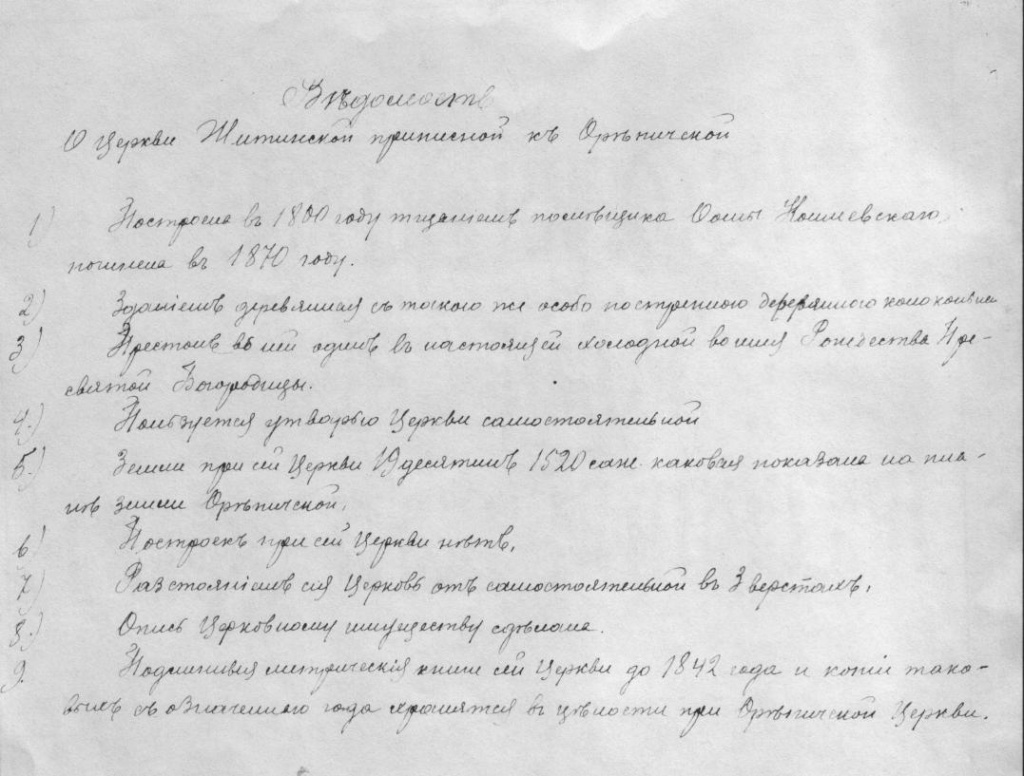 Вѣдомость
О Церкви Житинской приписной къ Орѣпичской
1) Построена въ 1800 году тщаніемъ помѣщика Ѳомы
починена въ 1870 году.
2) Зданіемъ деревянная съ такою же особо построенною деревянною колокольнею
3) Престолъ въ ней одинъ въ настоящей холодной во имя Рождества Пре-
святой Богородицы.
4.) Пользуется утварью Церкви самостоятельной
5.) Земли при сей Церкви 19 десятинъ 1520 саж. каковая показана на пла-
нѣ земли Орѣпичской.
6) Построекъ при сей Церкви нѣтъ.
7) Разстояніемъ сія Церковь отъ самостоятельной въ 3 верстахъ.
8.) Опись Церковному имуществу сдѣлана.
9. Подлинныя метрическія книги сей Церкви до 1842 года и копіи тако-
выхъ съ означеннаго года хранятся въ цѣлности при Орѣпичской Церкви.